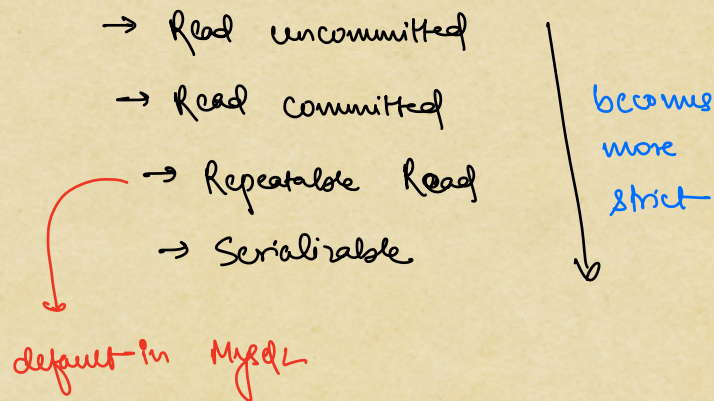 → Read uncommitted
→ Read committed
→ Repeatable Read
→ Serializable
becomes
more
strict
default in MySQL